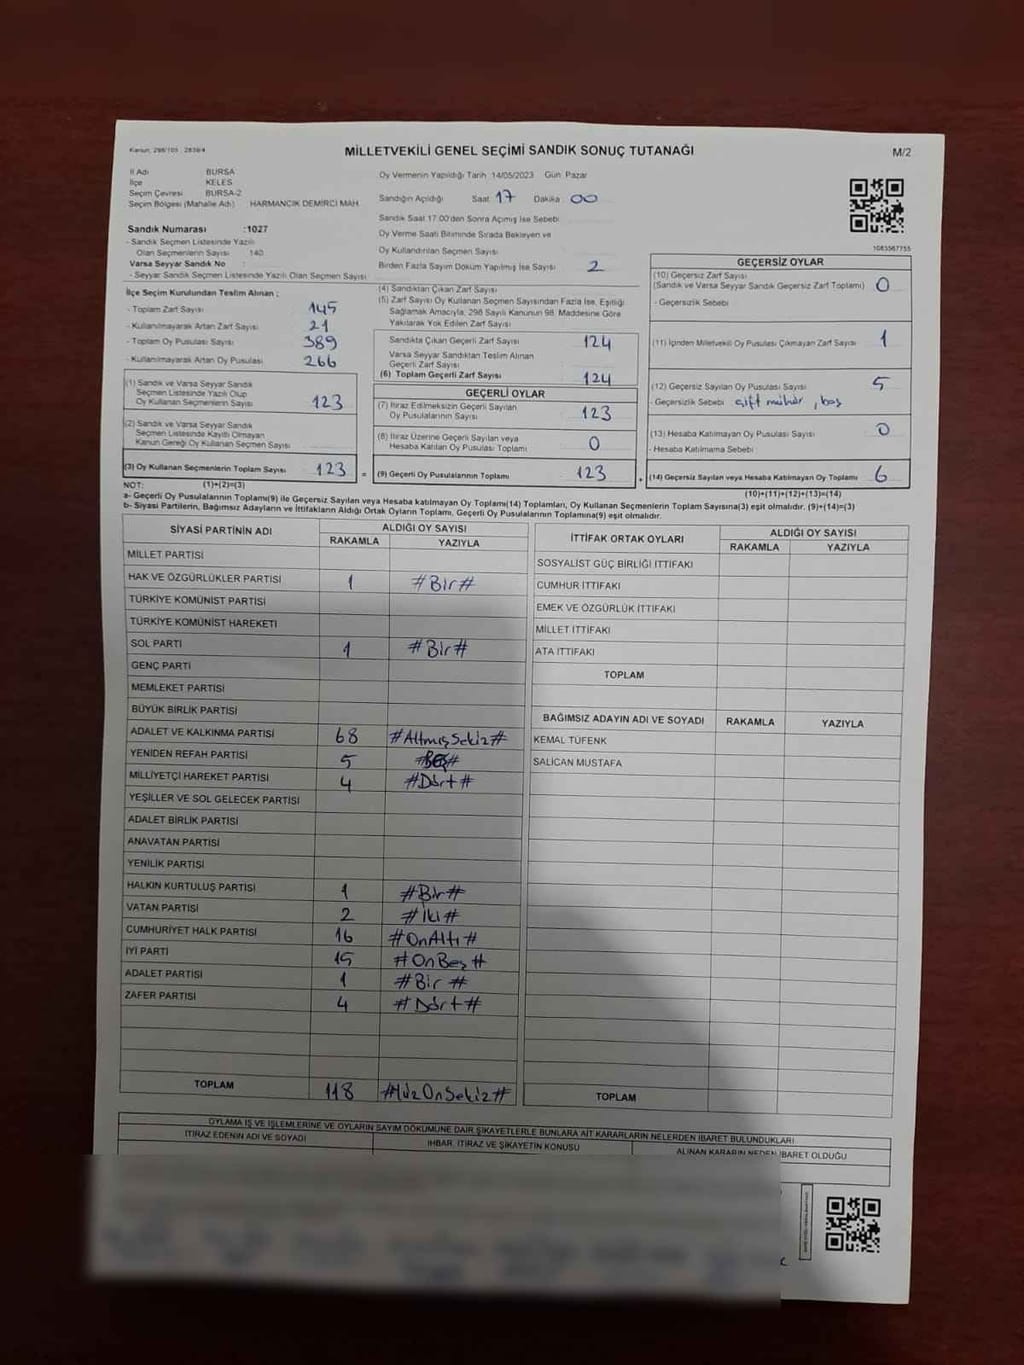 Kanun: 298/105 , 2839/4
MİLLETVEKİLİ GENEL SEÇİMİ SANDIK SONUÇ TUTANAĞI
M/2
İl Adı BURSA
İlçe KELES
Seçim Çevresi BURSA-2
Seçim Bölgesi (Mahalle Adı) HARMANCIK DEMİRCİ MAH.
Oy Vermenin Yapıldığı Tarih 14/05/2023 Gün Pazar
Sandığın Açıldığı Saat 17 Dakika 00
Sandık Saat 17.00'den Sonra Açılmış İse Sebebi
Oy Verme Saati Bitiminde Sırada Bekleyen ve
Oy Kullandırılan Seçmen Sayısı
Birden Fazla Sayım Döküm Yapılmış İse Sayısı 2
1083567755
Sandık Numarası :1027
- Sandık Seçmen Listesinde Yazılı
Olan Seçmenlerin Sayısı 140
Varsa Seyyar Sandık No :
- Seyyar Sandık Seçmen Listesinde Yazılı Olan Seçmen Sayısı
İlçe Seçim Kurulundan Teslim Alınan :
- Toplam Zarf Sayısı 145
- Kullanılmayarak Artan Zarf Sayısı 21
- Toplam Oy Pusulası Sayısı 389
- Kullanılmayarak Artan Oy Pusulası 266
(1) Sandık ve Varsa Seyyar Sandık
Seçmen Listesinde Yazılı Olup
Oy Kullanan Seçmenlerin Sayısı 123
(2) Sandık ve Varsa Seyyar Sandık
Seçmen Listesinde Kayıtlı Olmayan
Kanun Gereği Oy Kullanan Seçmen Sayısı
(3) Oy Kullanan Seçmenlerin Toplam Sayısı 123 =
(4) Sandıktan Çıkan Zarf Sayısı
(5) Zarf Sayısı Oy Kullanan Seçmen Sayısından Fazla İse, Eşitliği
Sağlamak Amacıyla, 298 Sayılı Kanunun 98. Maddesine Göre
Yakılarak Yok Edilen Zarf Sayısı
Sandıkta Çıkan Geçerli Zarf Sayısı 124
Varsa Seyyar Sandıktan Teslim Alınan
Geçerli Zarf Sayısı
(6) Toplam Geçerli Zarf Sayısı 124
GEÇERLİ OYLAR
(7) İtiraz Edilmeksizin Geçerli Sayılan
Oy Pusulalarının Sayısı 123
(8) İtiraz Üzerine Geçerli Sayılan veya
Hesaba Katılan Oy Pusulaları Toplamı 0
(9) Geçerli Oy Pusulalarının Toplamı 123 +
GEÇERSİZ OYLAR
(10) Geçersiz Zarf Sayısı
(Sandık ve Varsa Seyyar Sandık Geçersiz Zarf Toplamı) 0
- Geçersizlik Sebebi
(11) İçinden Milletvekili Oy Pusulası Çıkmayan Zarf Sayısı 1
(12) Geçersiz Sayılan Oy Pusulası Sayısı 5
- Geçersizlik Sebebi çift mühür, boş
(13) Hesaba Katılmayan Oy Pusulası Sayısı 0
- Hesaba Katılmama Sebebi
(14) Geçersiz Sayılan veya Hesaba Katılmayan Oy Toplamı 6
NOT: (1)+(2)=(3)
(10)+(11)+(12)+(13)=(14)
a- Geçerli Oy Pusulalarının Toplamı(9) ile Geçersiz Sayılan veya Hesaba katılmayan Oy Toplamı(14) Toplamları, Oy Kullanan Seçmenlerin Toplam Sayısına(3) eşit olmalıdır. (9)+(14)=(3)
b- Siyasi Partilerin, Bağımsız Adayların ve İttifakların Aldığı Ortak Oyların Toplamı, Geçerli Oy Pusulalarının Toplamına(9) eşit olmalıdır.
SİYASİ PARTİNİN ADI ALDIĞI OY SAYISI
RAKAMLA YAZIYLA
MİLLET PARTİSİ
HAK VE ÖZGÜRLÜKLER PARTİSİ 1 #Bir#
TÜRKİYE KOMÜNİST PARTİSİ
TÜRKİYE KOMÜNİST HAREKETİ
SOL PARTİ 1 #Bir#
GENÇ PARTİ
MEMLEKET PARTİSİ
BÜYÜK BİRLİK PARTİSİ
ADALET VE KALKINMA PARTİSİ 68 #AltmışSekiz#
YENİDEN REFAH PARTİSİ 5 #Beş#
MİLLİYETÇİ HAREKET PARTİSİ 4 #Dört#
YEŞİLLER VE SOL GELECEK PARTİSİ
ADALET BİRLİK PARTİSİ
ANAVATAN PARTİSİ
YENİLİK PARTİSİ
HALKIN KURTULUŞ PARTİSİ 1 #Bir#
VATAN PARTİSİ 2 #İki#
CUMHURİYET HALK PARTİSİ 16 #OnAltı#
İYİ PARTİ 15 #OnBeş#
ADALET PARTİSİ 1 #Bir#
ZAFER PARTİSİ 4 #Dört#
TOPLAM 118 #YüzOnSekiz#
İTTİFAK ORTAK OYLARI ALDIĞI OY SAYISI
RAKAMLA YAZIYLA
SOSYALİST GÜÇ BİRLİĞİ İTTİFAKI
CUMHUR İTTİFAKI
EMEK VE ÖZGÜRLÜK İTTİFAKI
MİLLET İTTİFAKI
ATA İTTİFAKI
TOPLAM
BAĞIMSIZ ADAYIN ADI VE SOYADI RAKAMLA YAZIYLA
KEMAL TÜFENK
SALİCAN MUSTAFA
TOPLAM
OYLAMA İŞ VE İŞLEMLERİNE VE OYLARIN SAYIM DÖKÜMÜNE DAİR ŞİKAYETLERLE BUNLARA AİT KARARLARIN NELERDEN İBARET BULUNDUKLARI
İTİRAZ EDENİN ADI VE SOYADI İHBAR, İTİRAZ VE ŞİKAYETİN KONUSU ALINAN KARARIN NEDEN İBARET OLDUĞU